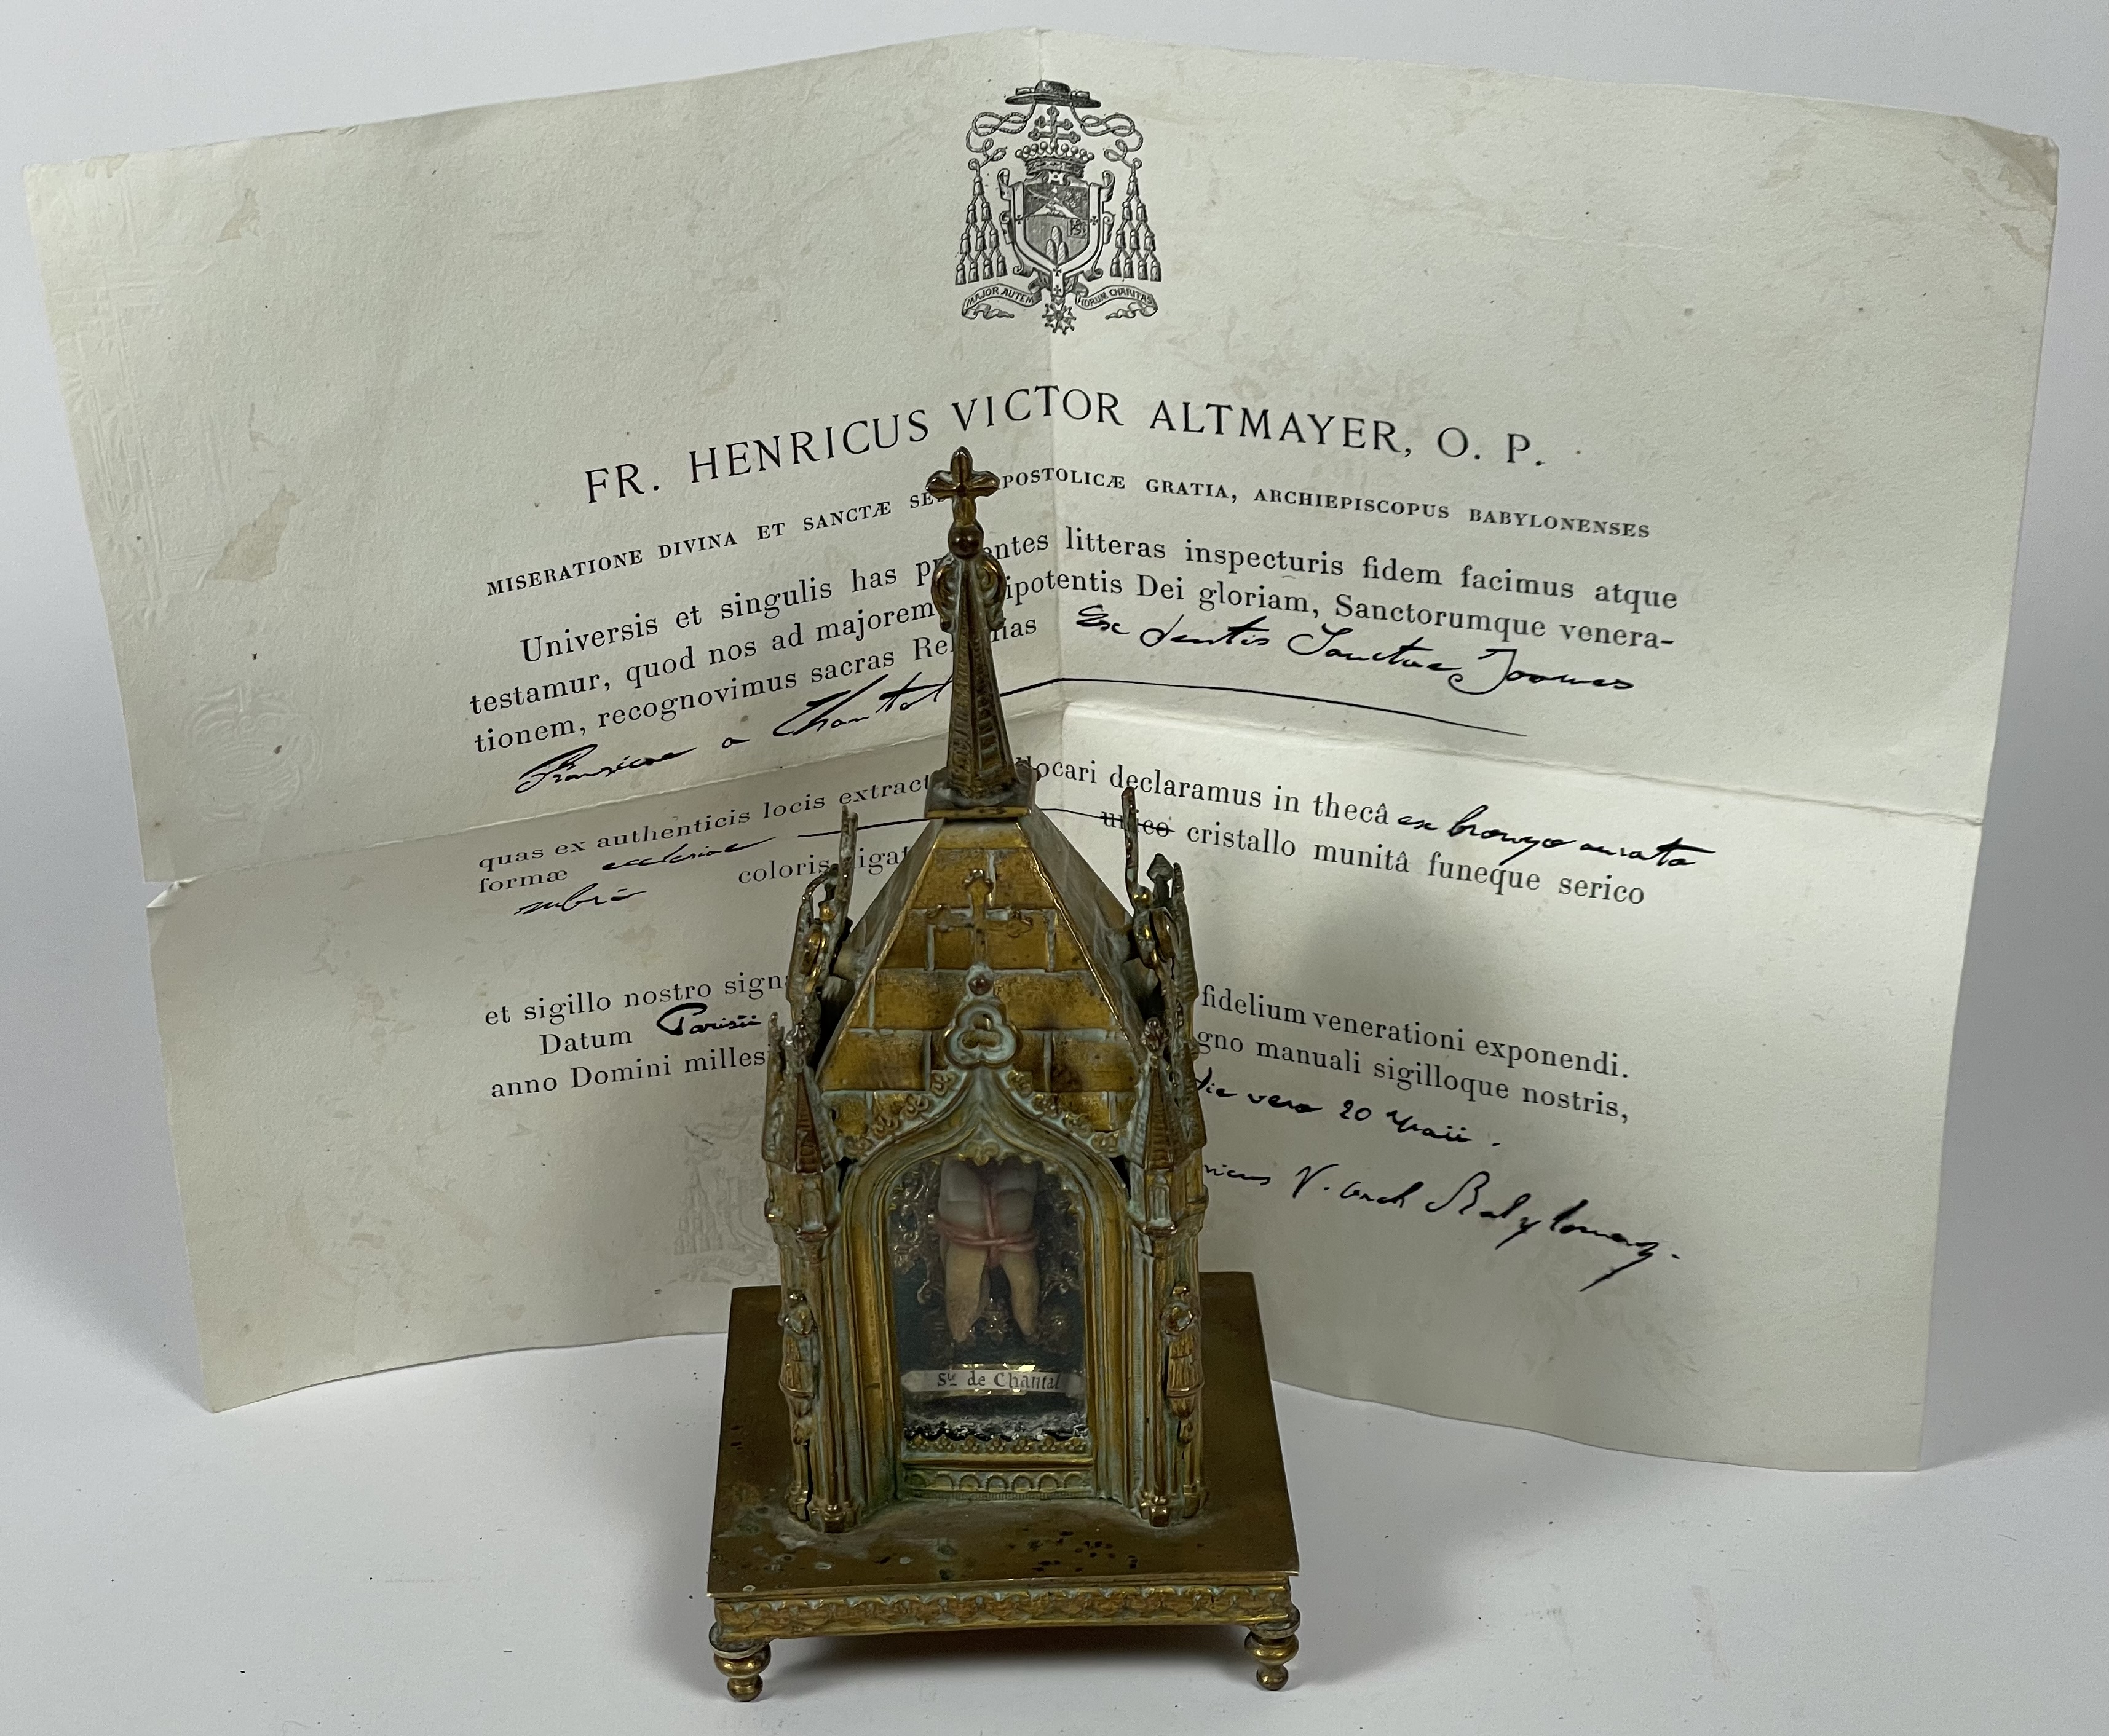 MAJOR AUTEM HORUM CHARITAS
FR. HENRICUS VICTOR ALTMAYER, O. P.
MISERATIONE DIVINA ET SANCTÆ SE POSTOLICÆ GRATIA, ARCHIEPISCOPUS BABYLONENSES
Universis et singulis has pr entes litteras inspecturis fidem facimus atque
testamur, quod nos ad majorem ipotentis Dei gloriam, Sanctorumque venera-
tionem, recognovimus sacras Rel ias Ex dentis Sanctae Joannes
Francicae a Chantal
quas ex authenticis locis extract locari declaramus in thecâ ex bronzo aurato
formæ ecclesiae unico cristallo munitâ funeque serico
rubri coloris ligat
et sigillo nostro signa fidelium venerationi exponendi.
Datum Parisii gno manuali sigilloque nostris,
anno Domini millesi die vero 20 Maii.
ricus V. arch Babylonens.
Ste de Chantal